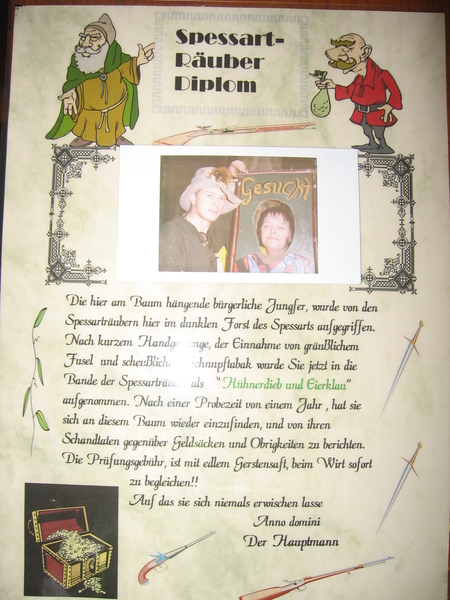 Spessart-
Räuber
Diplom
Gesucht
Die hier am Baum hängende bürgerliche Jungfer, wurde von den
Spessarträubern hier im dunklen Forst des Spessarts aufgegriffen.
Nach kurzem der Einnahme von gräußlichem
Fusel und wurde Sie jetzt in die
Bande der als "Hühnerdieb und Eierklau"
aufgenommen. Nach einer Probezeit von einem Jahr , hat sie
sich an diesem Baum wieder einzufinden, und von ihren
Schandtaten gegenüber Geldsäcken und Obrigkeiten zu berichten.
Die Prüfungsgebühr, ist mit edlem Gerstensaft, beim Wirt sofort
zu begleichen!!
Auf das sie sich niemals erwischen lasse
Anno domini
Der Hauptmann